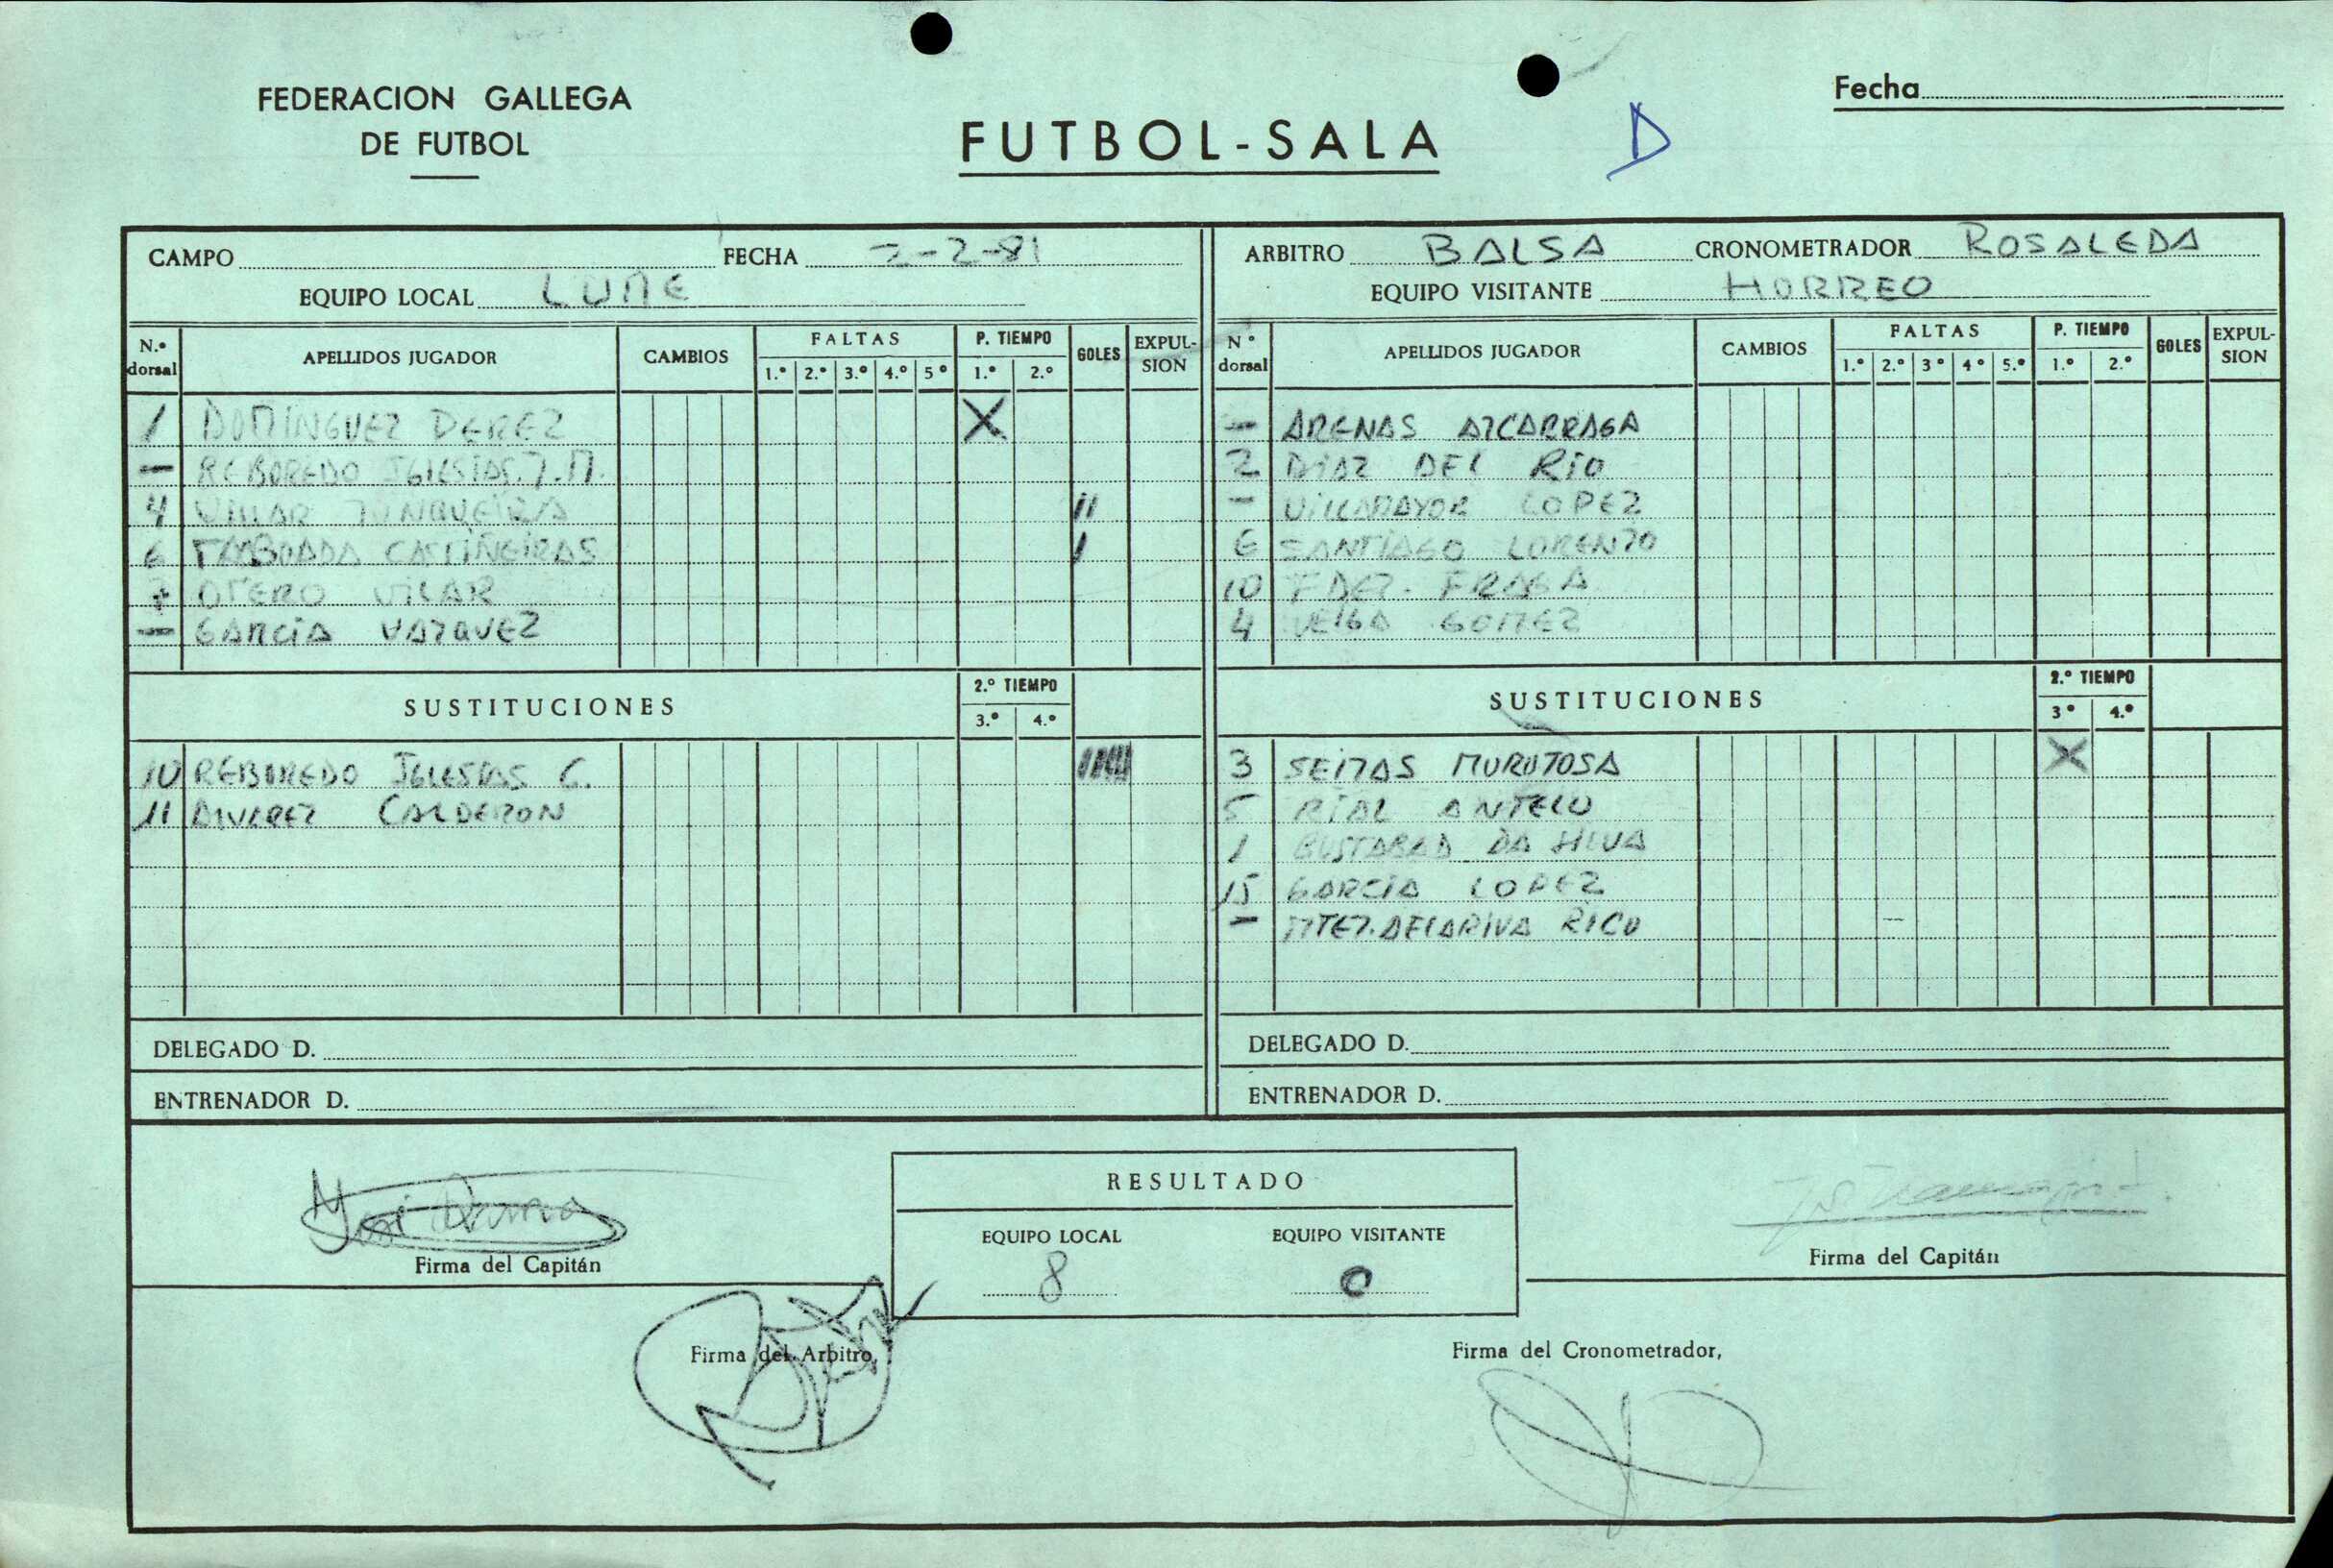 FEDERACION GALLEGA
DE FUTBOL
FUTBOL-SALA
D
Fecha
CAMPO FECHA 2-2-81
EQUIPO LOCAL LUME
ARBITRO BALSA CRONOMETRADOR ROSALEDA
EQUIPO VISITANTE HORREO
N.º dorsal APELLIDOS JUGADOR CAMBIOS FALTAS 1.º 2.º 3.º 4.º 5º P. TIEMPO 1.º 2.º GOLES EXPUL-SION
1 DOMINGUEZ PEREZ X
— REBOREDO IGLESIAS J.M.
4 VILLAR JUNQUEIRA II
6 TABOADA CASTIÑEIRAS I
7 OTERO VILAR
— GARCIA VAZQUEZ
SUSTITUCIONES 2.º TIEMPO 3.º 4.º
10 REBOREDO IGLESIAS C. IIIII
11 ALVAREZ CALDERON
DELEGADO D.
ENTRENADOR D.
Nº dorsal APELLIDOS JUGADOR CAMBIOS FALTAS 1.º 2.º 3º 4º 5.º P. TIEMPO 1.º 2.º GOLES EXPUL-SION
— ARENAS AZCARRAGA
2 DIAZ DEL RIO
— VILLAMAYOR LOPEZ
6 SANTIAGO LORENZO
10 FDEZ. FRAGA
4 VEIGA GOMEZ
SUSTITUCIONES 2.º TIEMPO 3º 4.º
3 SEIJAS X
5 RIAL ANTELO
1 BUSTABAD DA SILVA
15 GARCIA LOPEZ
— MTEZ. DE LA RIVA RICO
DELEGADO D.
ENTRENADOR D.
RESULTADO
EQUIPO LOCAL EQUIPO VISITANTE
8 0
Firma del Capitán
Firma del Capitán
Firma del Arbitro,
Firma del Cronometrador,